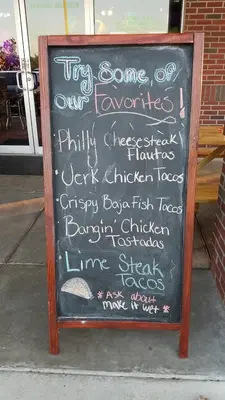 Try Some of
our Favorites!
Philly Cheesesteak
Flautas
Jerk Chicken Tacos
Crispy Baja Fish Tacos
Bangin' Chicken
Tostadas
Lime Steak
Tacos
*Ask about
Make it wet*